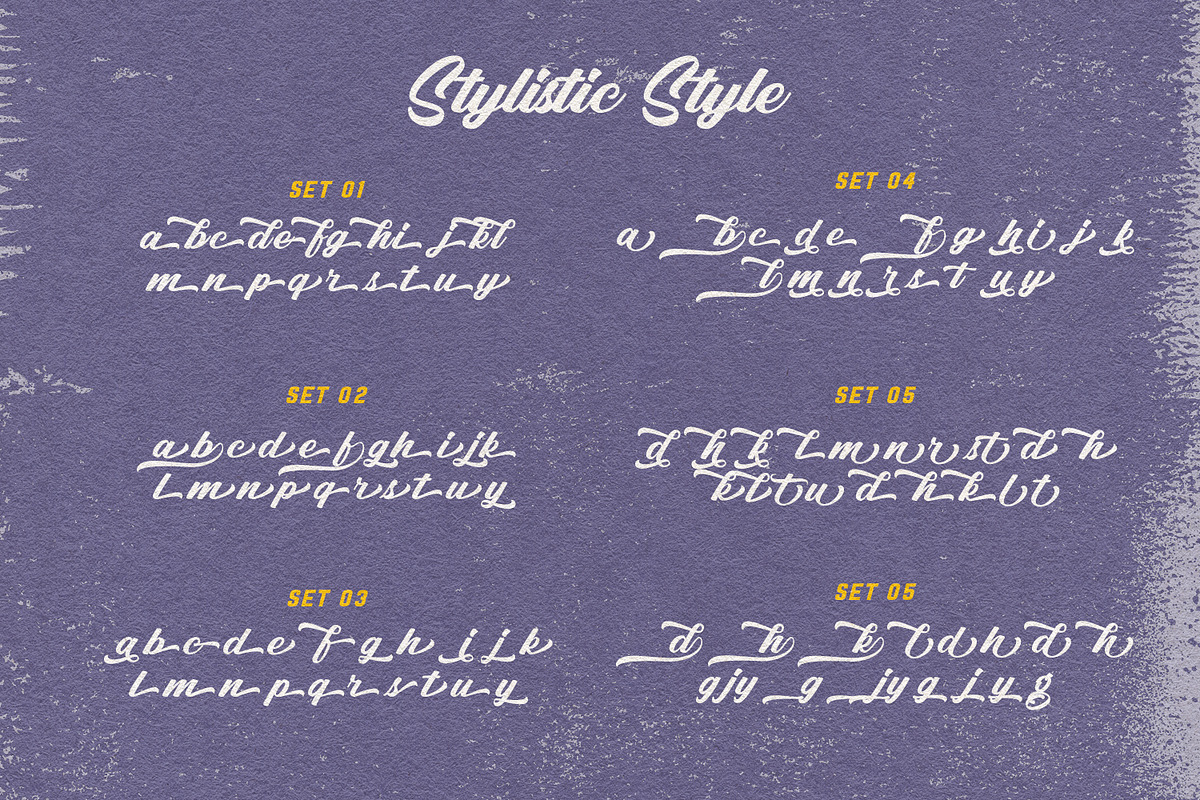 Stylistic Style
SET 01
a bc de fg hi j kl
m n p q r s t u y
SET 02
a b c d e f g h i j k
l m n p q r s t u y
SET 03
a b c d e f g h i j k
l m n p q r s t u y
SET 04
a b c d e f g h i j k
l m n r s t u y
SET 05
d h k l m n r st d h
k l t u d h k l t
SET 05
d h k l d h d h
gjy g jy g j y g